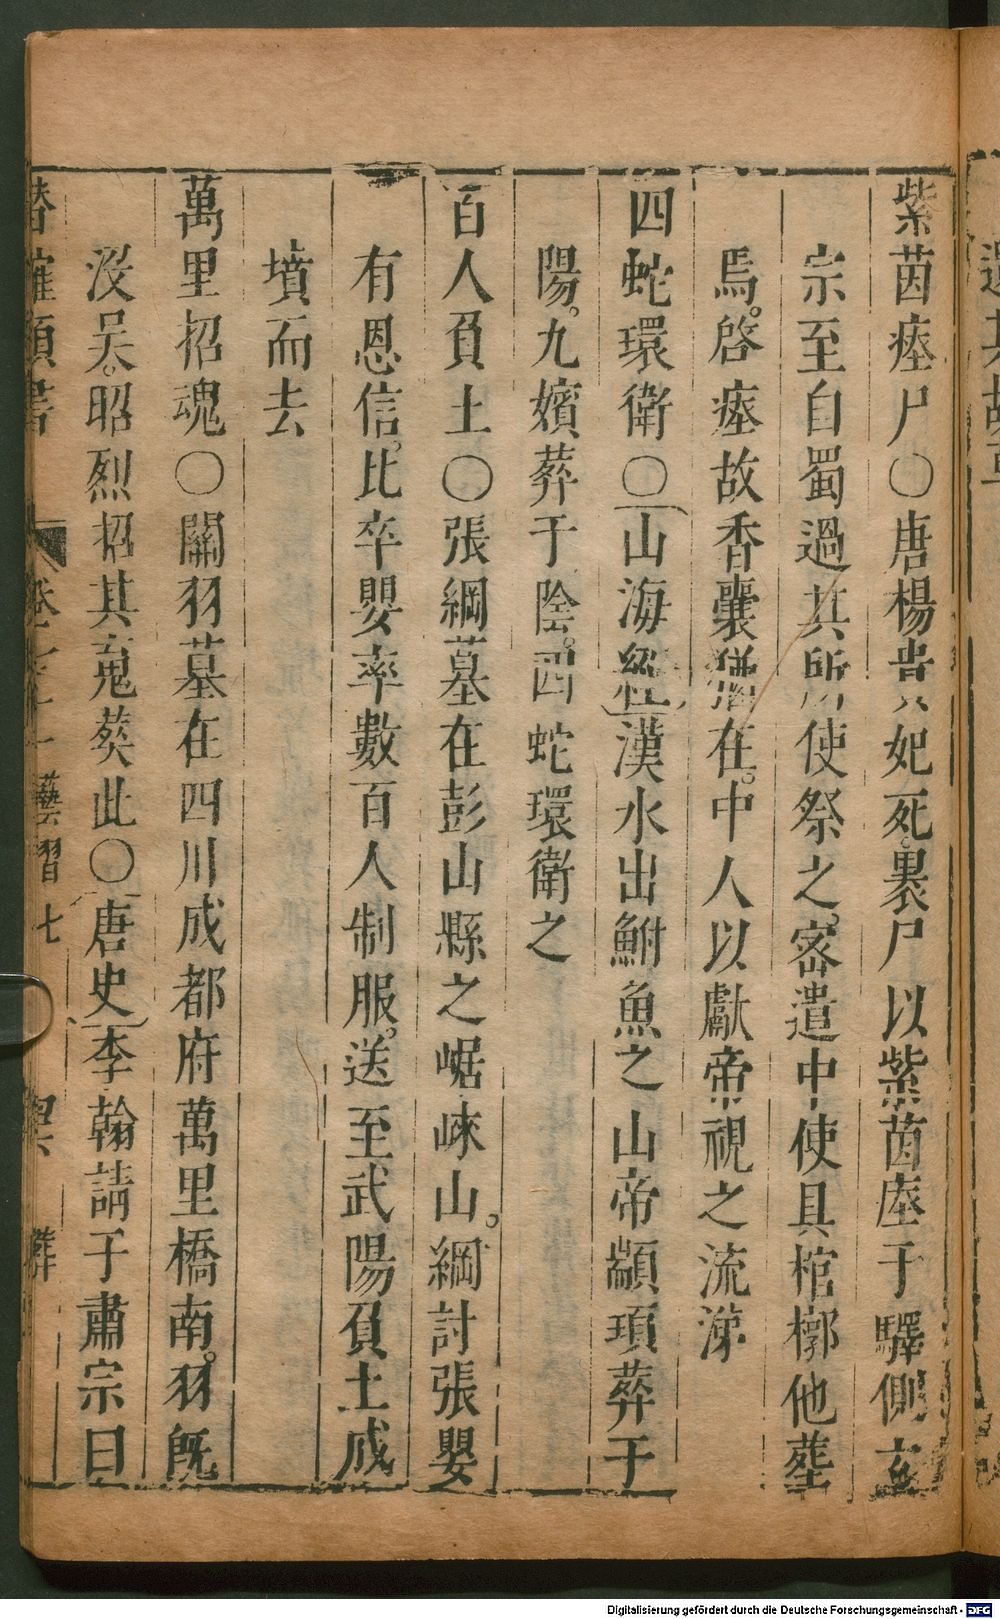 紫茵瘞尸〇唐楊貴妃死。裹尸以紫茵瘞于驛側玄
宗至自蜀過其所使祭之。密遣中使具棺槨他葬
焉。啓瘞故香囊猶在。中人以獻帝視之流涕
四蛇環衛〇山海經漢水出鮒魚之山帝顓頊葬于
陽。九嬪葬于陰。四蛇環衛之
百人負土〇張綱墓在彭山縣之崌崍山。綱討張嬰
有恩信。比卒嬰率數百人制服。送至武陽負土成
墳而去
萬里招魂〇關羽墓在四川成都府萬里橋南。羽既
沒吴。昭烈招其䰟葬此〇唐史李翰請于肅宗曰
潜確類書 卷 藝習七 七
Digitalisierung gefördert durch die Deutsche Forschungsgemeinschaft - DFG